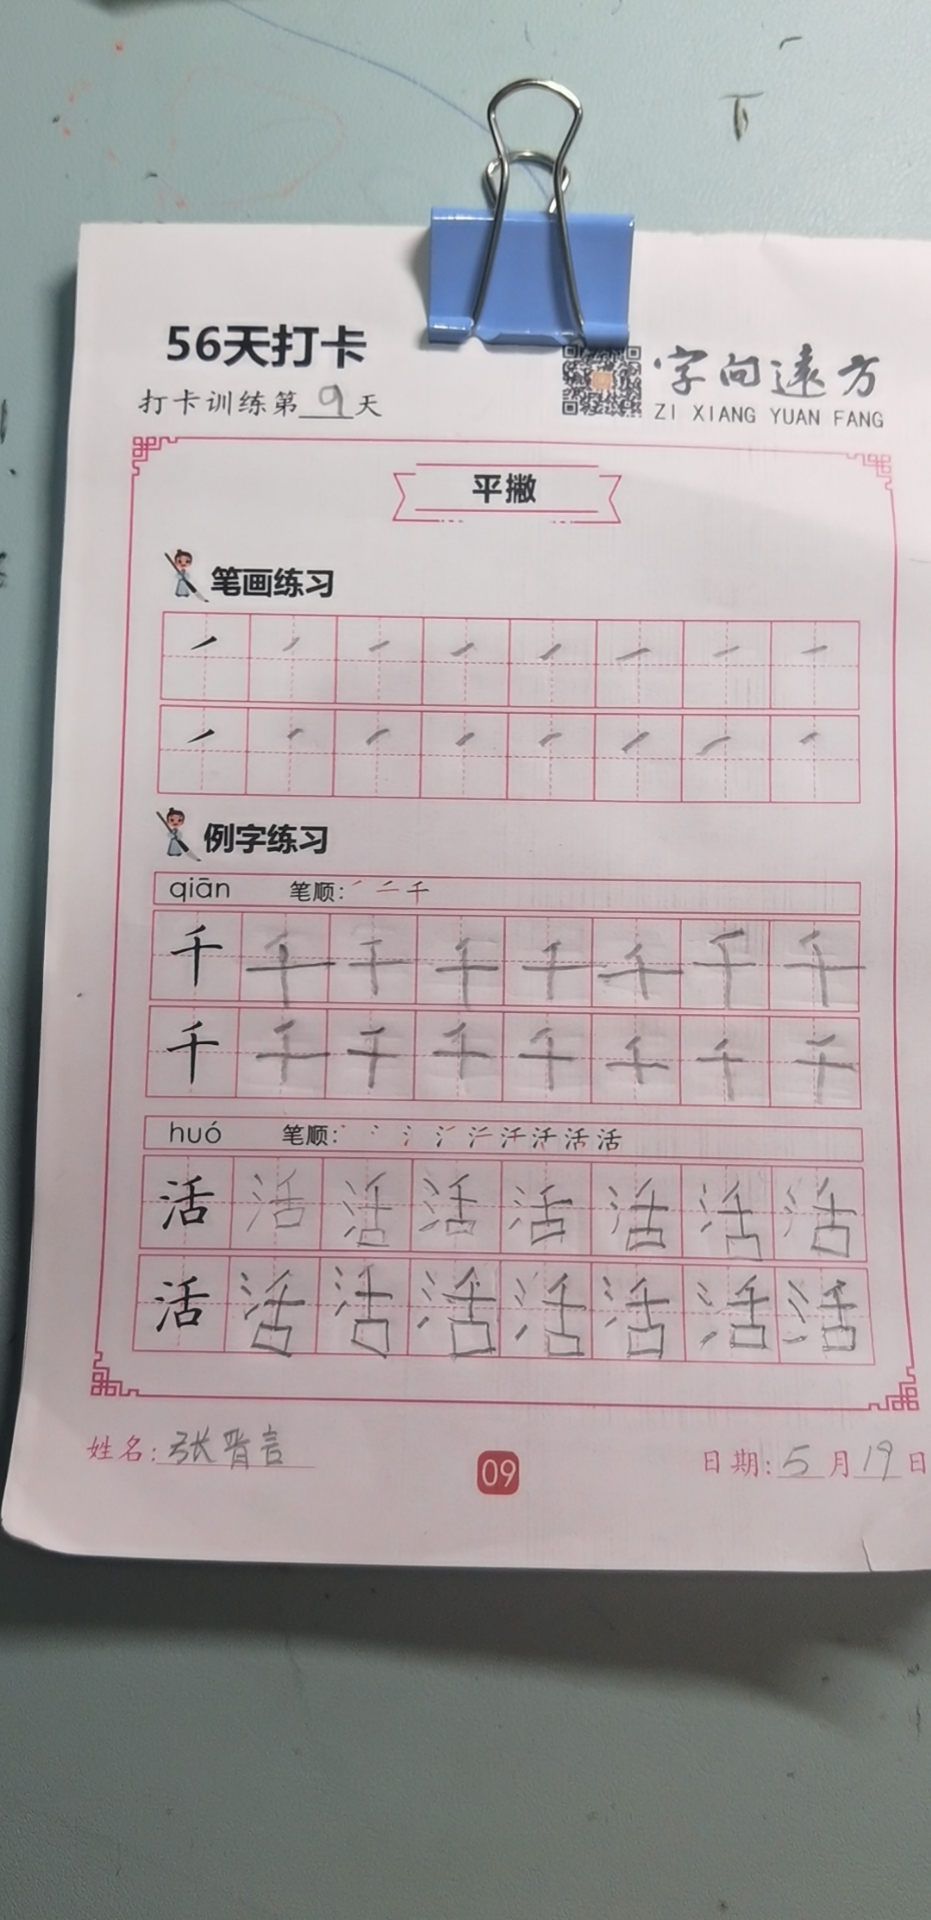 下
56天打卡
打卡训练第9天
字向远方
ZI XIANG YUAN FANG
平撇
笔画练习
例字练习
qiān 笔顺: ㇒ 二 千
千 千 千 千 千 千 千 千
千 千 千 千 千 千 千 千
huó 笔顺: 活 活
活 活 活 活 活 活 活 活
活 活 活 活 活 活 活 活
姓名: 张晋言
09
日期: 5月19日